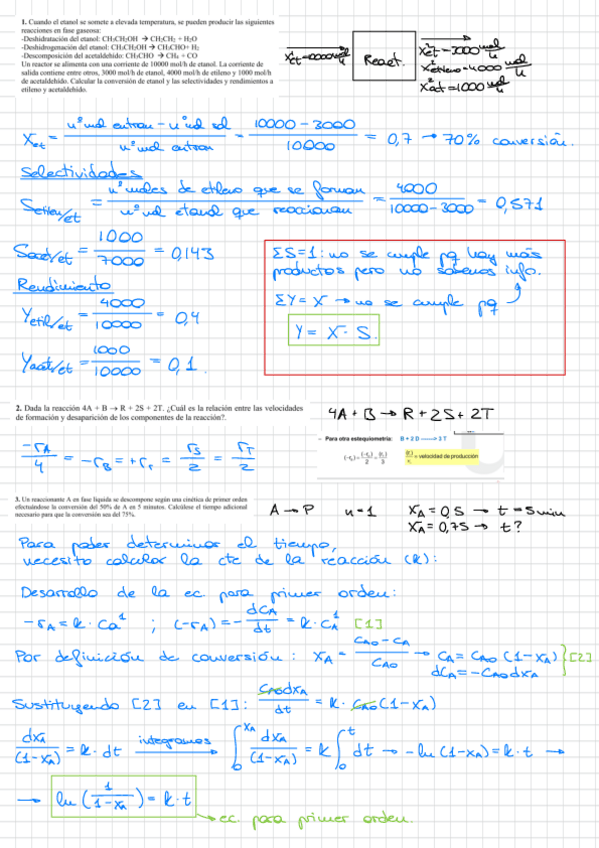 1. Cuando el etanol se somete a elevada temperatura, se pueden producir las siguientes
reacciones en fase gaseosa:
-Deshidratación del etanol: CH3CH2OH → CH2CH2 + H2O
-Deshidrogenación del etanol: CH3CH2OH → CH3CHO+ H2
-Descomposición del acetaldehído: CH3CHO → CH4 + CO
Un reactor se alimenta con una corriente de 10000 mol/h de etanol. La corriente de
salida contiene entre otros, 3000 mol/h de etanol, 4000 mol/h de etileno y 1000 mol/h
de acetaldehído. Calcular la conversión de etanol y las selectividades y rendimientos a
etileno y acetaldehído.
React.
Xet = (nº mol entran - nº mol sal) / (nº mol entran) = (10000 - 3000) / 10000 = 0,7 → 70% conversión.
Selectividades
Setilen/et = (nº moles de etileno que se forman) / (nº mol etanol que reaccionan) = 4000 / (10000 - 3000) = 0,571
Sacet/et = 1000 / 7000 = 0,143
ΣS=1: no se cumple pq hay más
productos pero no sabemos info.
Rendimiento
ΣY = X → no se cumple pq
Yetil/et = 4000 / 10000 = 0,4
Y = X · S.
Yacet/et = 1000 / 10000 = 0,1.
2. Dada la reacción 4A + B → R + 2S + 2T. ¿Cuál es la relación entre las velocidades
de formación y desaparición de los componentes de la reacción?.
4A + B → R + 2S + 2T
Para otra estequiometría: B + 2 D -------> 3 T
= velocidad de producción
-rA/4 = -rB = +rr = rS/2 = rT/2
3. Un reaccionante A en fase líquida se descompone según una cinética de primer orden
efectuándose la conversión del 50% de A en 5 minutos. Calcúlese el tiempo adicional
necesario para que la conversión sea del 75%.
A → P n = 1 XA = 0,5 → t = 5 min
XA = 0,75 → t?
Para poder determinar el tiempo,
necesito calcular la cte de la reacción (k):
Desarrollo de la ec. para primer orden:
-rA = k · Ca^1 ; (-rA) = - dCA/dt = k · CA^1 [1]
Por definición de conversión: XA = (CA0 - CA) / CA0 → CA = CA0 (1-XA) } [2]
dCA = -CA0dXA
Sustituyendo [2] en [1]: CA0dXA/dt = k · CA0 (1-XA)
dXA/(1-XA) = k · dt integramos ∫0^XA dXA/(1-XA) = k ∫0^t dt → -ln(1-XA) = k · t →
→ ln (1/(1-XA)) = k · t
ec. para primer orden.